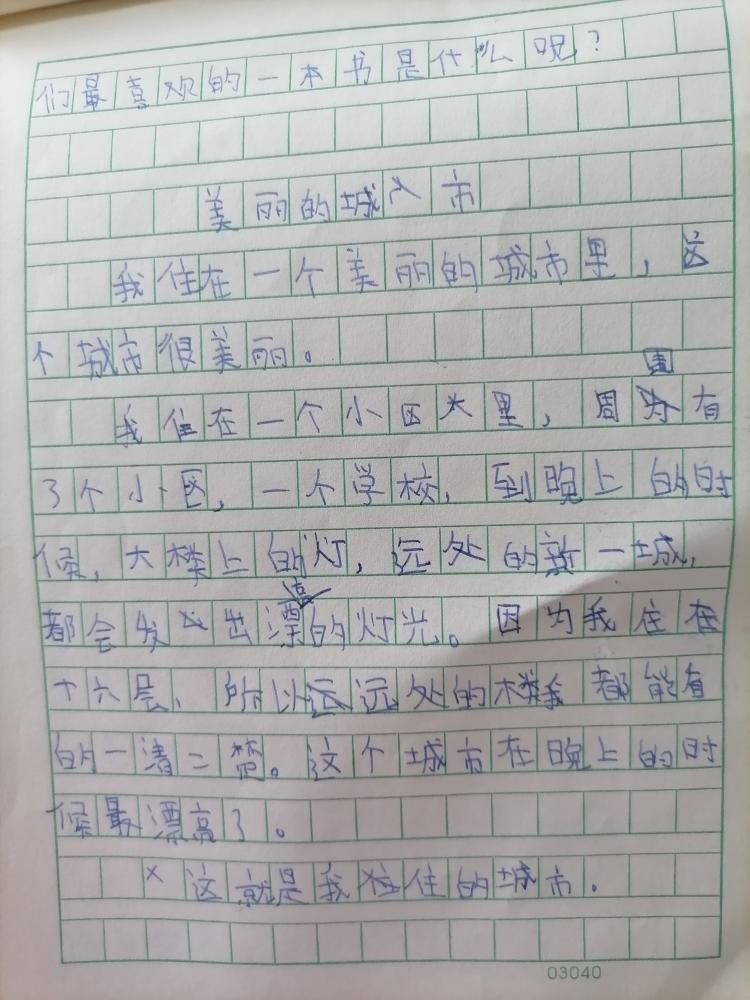 们最喜欢的一本书是什么呢？
美丽的城市
我住在一个美丽的城市里，这
个城市很美丽。
围
我住在一个小区里，周有
3个小区，一个学校，到晚上的时
候，大楼上的灯，远处的新一城，
亮
都会发出漂的灯光。因为我住在
十六层，所以远远处的楼我都能看
的一清二楚。这个城市在晚上的时
候最漂亮了。
这就是我住的城市。
03040